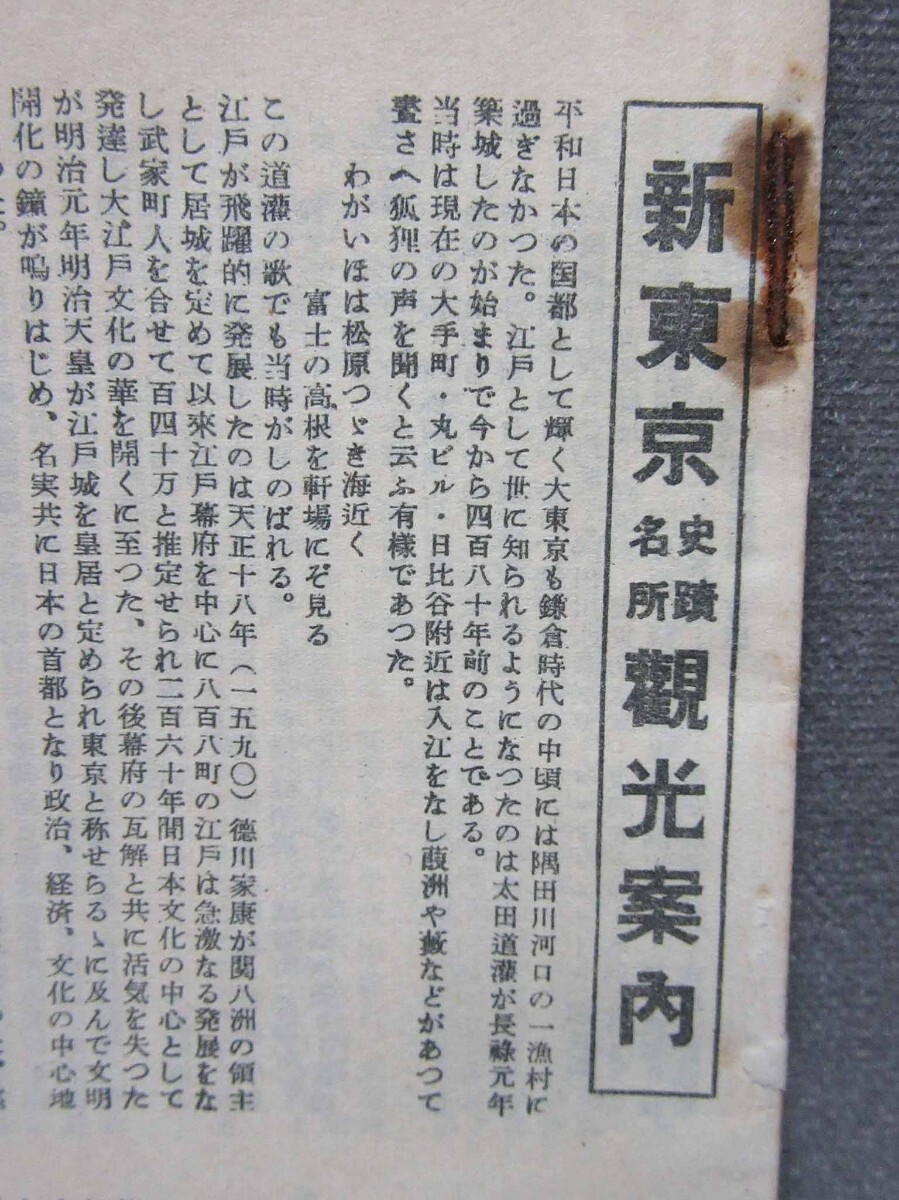 新東京史蹟名所觀光案內
平和日本の国都として輝く大東京も鎌倉時代の中頃には隅田川河口の一漁村に
過ぎなかつた。江戸として世に知られるようになつたのは太田道灌が長祿元年
築城したのが始まりで今から四百八十年前のことである。
当時は現在の大手町・丸ビル・日比谷附近は入江をなし葭洲や藪などがあつて
晝さへ狐狸の声を聞くと云ふ有様であつた。
わがいほは松原つゞき海近く
富士の高根を軒場にぞ見る
この道灌の歌でも当時がしのばれる。
江戸が飛躍的に発展したのは天正十八年（一五九〇）德川家康が関八洲の領主
として居城を定めて以來江戸幕府を中心に八百八町の江戸は急激なる発展をな
し武家町人を合せて百四十万と推定せられ二百六十年間日本文化の中心として
発達し大江戸文化の華を開くに至つた、その後幕府の瓦解と共に活気を失つた
が明治元年明治天皇が江戸城を皇居と定められ東京と称せらるゝに及んで文明
開化の鐘が鳴りはじめ、名実共に日本の首都となり政治、経済、文化の中心地